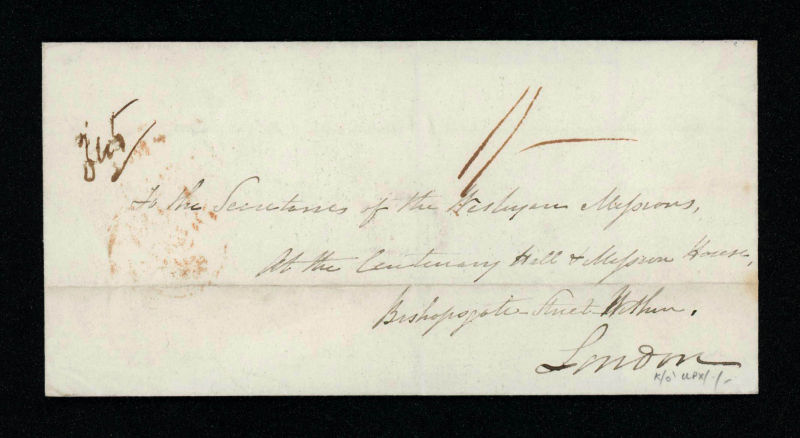 1/-
To the Secretaries of the Wesleyan Missions,
At the Centenary Hall & Mission House,
Bishopsgate Street Within.
London